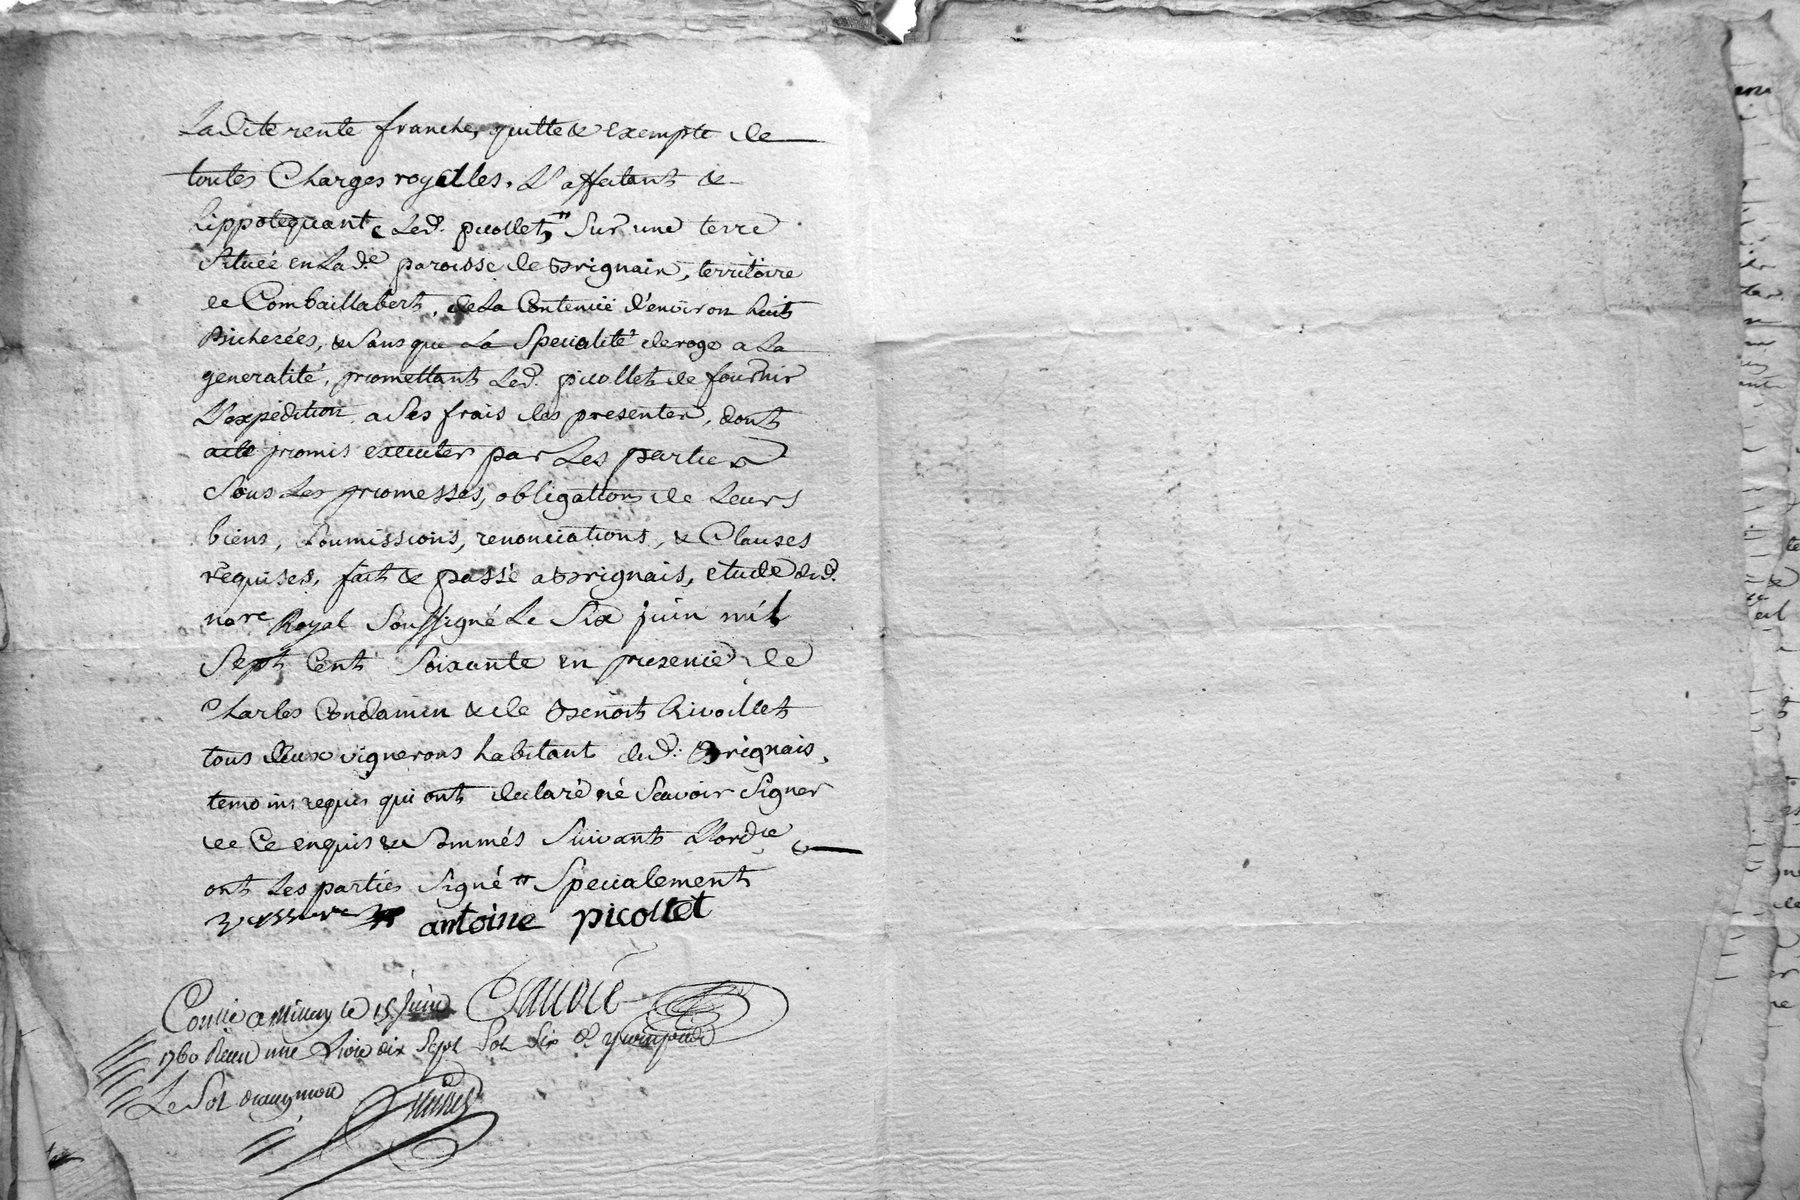 Ladite rente franche, quitte & exempte de
toutes Charges royalles. L'affectant &
hippotequant Led. picollet " Sur une terre
Située en Lad.e paroisse de Brignais, territoire
de Combaillabert, de La Contenüe d'environ huit
Bicherées, & Sans que La Specialité deroge a La
generalité, promettant Led. picollet de fournir
L'expédition a Ses frais des presentes, dont
acte promis executer par Les parties
Sous Les promesses, obligations de Leurs
biens, Soumissions, renonciations, & Clauses
requises, fait & passé a Brignais, etude dud.
nore Royal Soussigné Le Six juin mil
Sept Cent Soixante en presence de
Charles Condamin & de Benoit Rivoillet
tous deux vignerons habitant dud. Brignais,
temoins requis qui ont declaré né Scavoir Signer
de Ce enquis & Sommés Suivant L'ordce
ont Les parties Signé " Specialement
antoine picollet
Conlle a Millery le 15 Juin
1760 Recu une Livre dix Sept Sol Six d
Le Sol